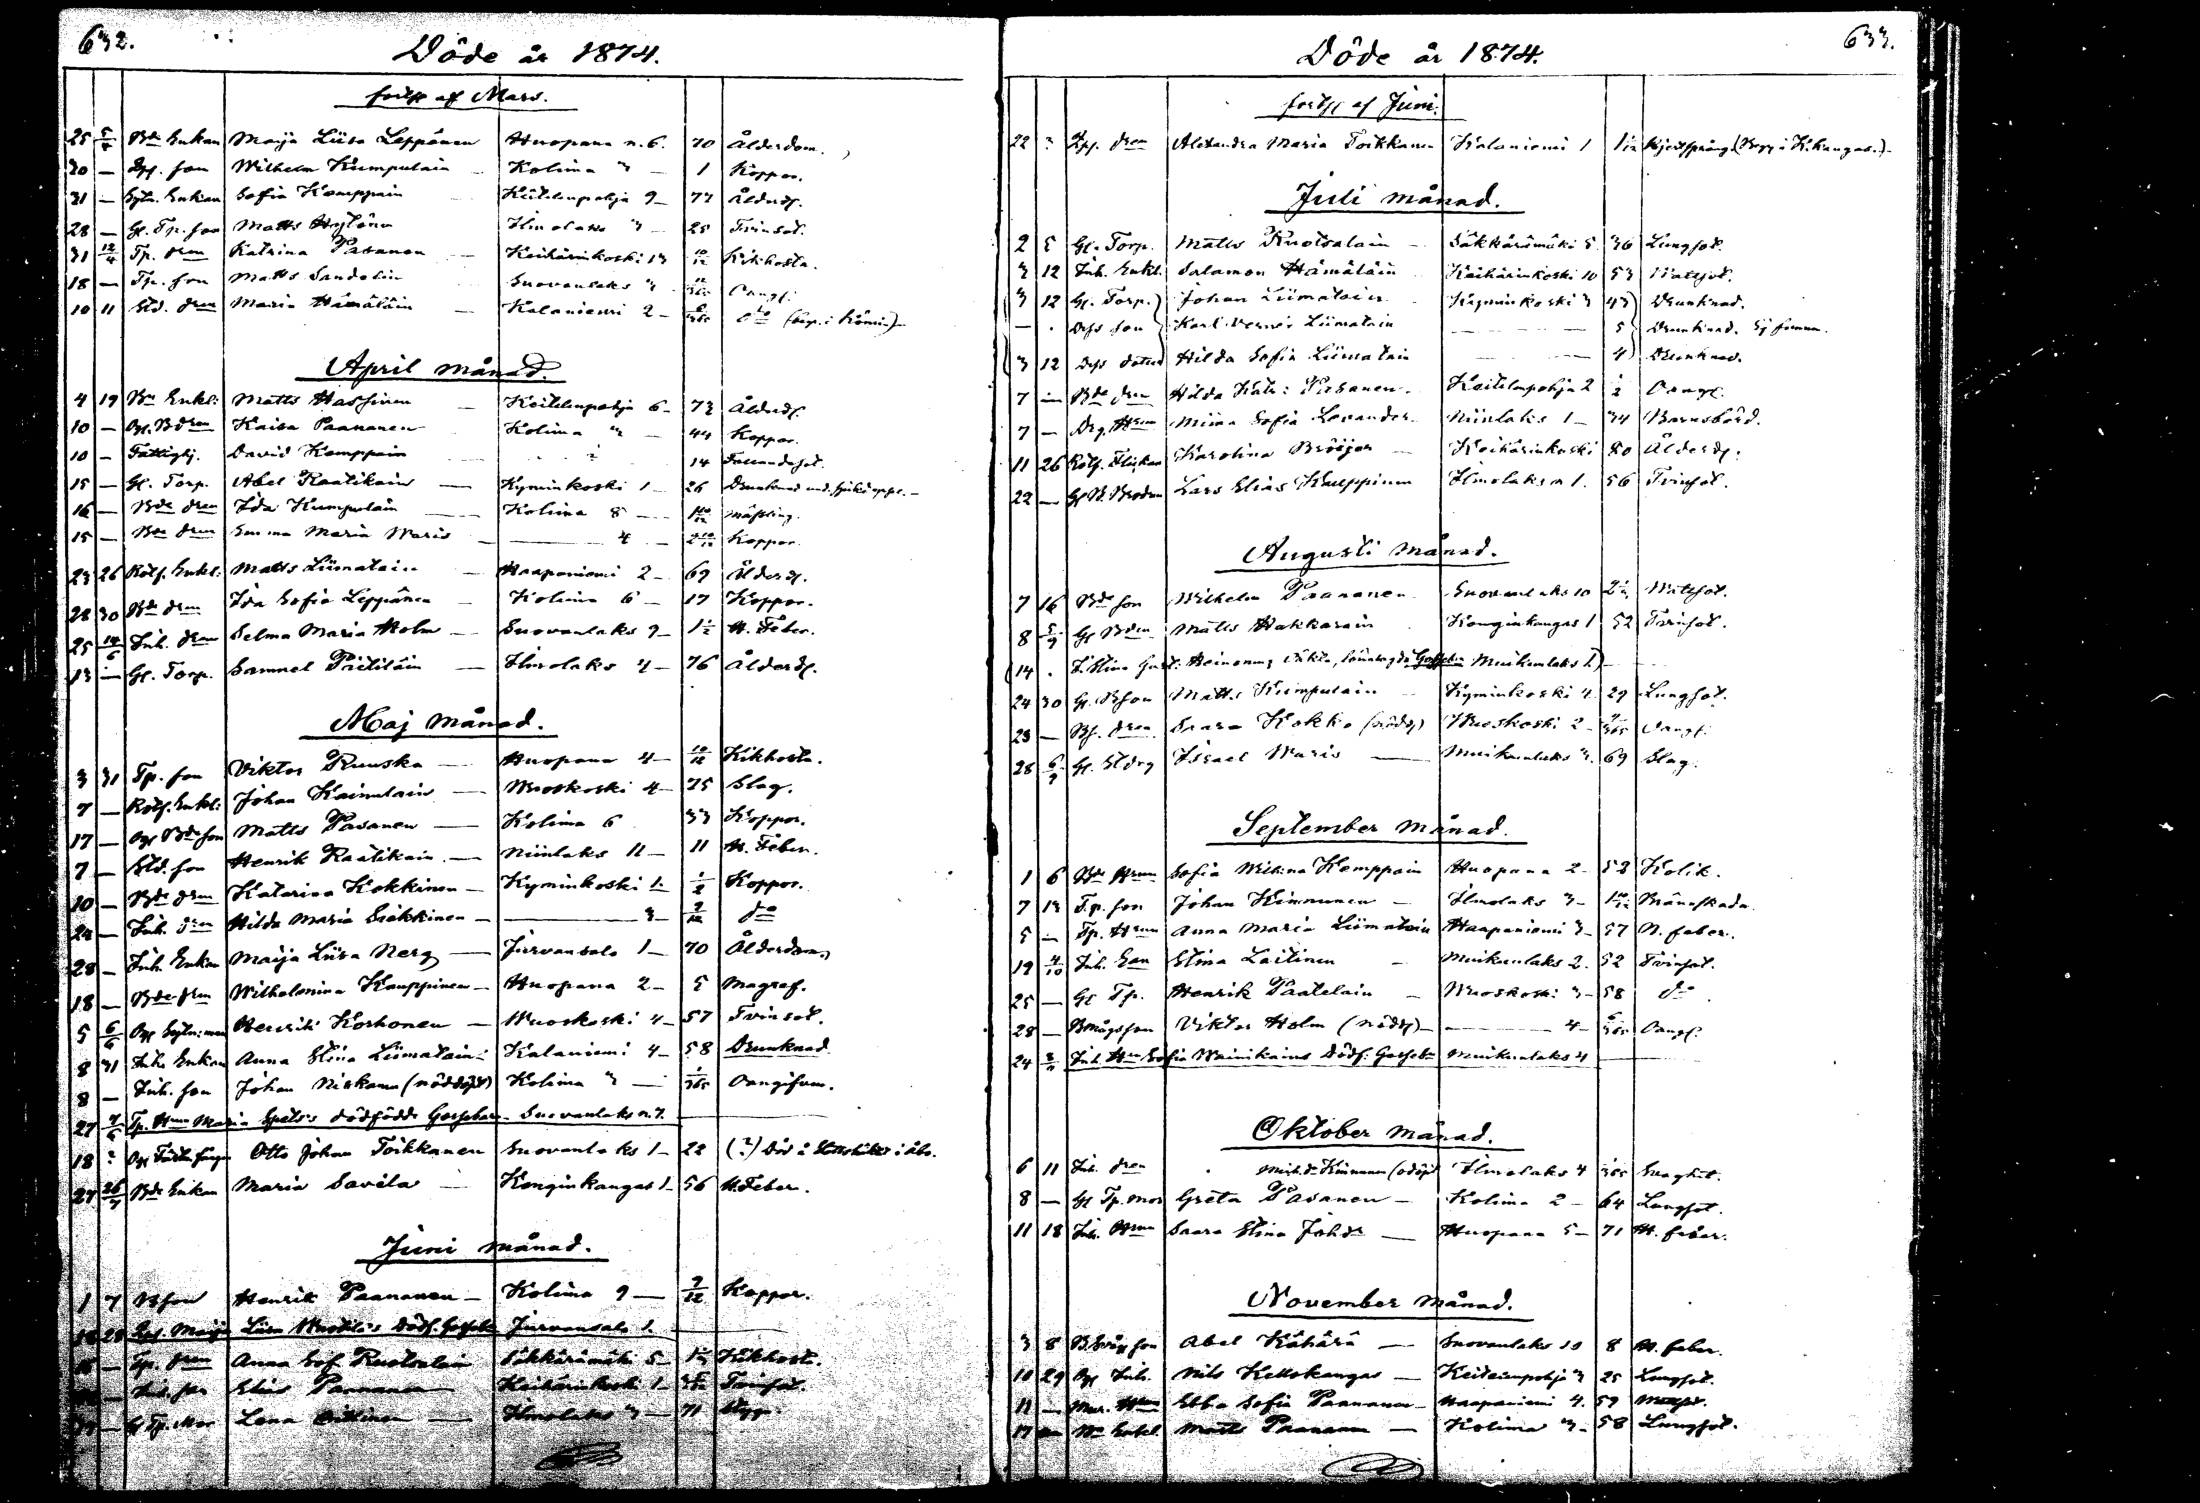 632.
Döde år 1874.
forts. af Mars.
25 5/4 Bde Enkan Maija Liisa Leppänen Huopana n. 6. 70 Ålderdom.
30 — son Wilhelm Kumpulain Kolima 3 1 Koppor.
31 — Enkan Sofia Kamppain Keitelenpohja 9 77 Ålderd.
28 — Gl. Tp. son Matts Hytönen Ilmolaks 3 25 Tvinsot.
31 12/4 Tp. dren Katrina Pasanen Keihärinkoski 13 10/12 Kikhosta.
18 — Tp. son Matts Sandelin Suovanlaks
10 11 dren Maria Hämäläin Kalaniemi 2 do
April månad.
4 19 Bn Enkl: Matts Hassinen Keitelenpohja 6 73 Ålderd.
10 — dren Kaisa Paananen Kolima 44 Koppor.
10 — Fattighj. David Kamppain 14 Fallandesot.
15 — Gl. Torp. Abel Raatikain Kyminkoski 1 26 Drunknad
16 — Bde dren Ida Kumpulain Kolima 8 1 10/12 Mässling.
15 — Bde dren Emma Maria Waris — 4 2 10/12 Koppor.
23 26 Rotf. Enkl: Matts Liimatain Haapaniemi 2 69 Ålderd.
28 30 Bde dren Ida Sofia Leppänen Kolima 6 17 Koppor.
25 14/6 Inh. dren Selma Maria Holm Suovanlaks 9 1 1/2 H. Feber.
13 — Gl. Torp. Samuel Päitiläin Ilmolaks 4 76 Ålderd.
Maj månad.
3 31 Tp. son Viktor Ruuska Huopana 4 10/12 Kikhosta.
7 — Rotf. Enkl: Johan Kainulain Wuoskoski 4 75 Slag.
17 — Bde son Matts Pasanen Kolima 6 33 Koppor.
7 — Std. son Henrik Raatikain Niinilaks 11 11 H. Feber.
10 — Bde dren Katarina Kokkinen Kyminkoski 1 1/2 Koppor.
24 — Inh. dren Hilda Maria Siekkinen — 3 9/12 do
28 — Inh. Enkan Maija Liisa Nerg Jurvansalo 1 70 Ålderdom.
18 — Bde dren Wilhelmina Kauppinen Huopana 2 5 Magref.
5 6/6 Henrik Korhonen Wuoskoski 4 57 Tvinsot.
8 31 Inh. Enkan Anna Stina Liimatain Kalaniemi 4 58 Drunknad
8 — Inh. son Johan Niskanen (nöddöpt) Kolima 3 1/365
27 7/6 Tp. Hrun Maria Spets's dödfödde Gossebarn Suovanlaks n. 7.
18 ? Otto Johan Toikkanen Suovanlaks 1 22 (?) Död å i Åbo.
27 26/7 Bde Enkan Maria Savela Konginkangas 1 56 H. Feber.
Juni månad.
1 7 Bson Henrik Paananen Kolima 9 9/12 Koppor.
28 Maija Liisa dödf. Gossebn Jurvansalo 1.
— Tp. dren Anna Sof. Ruotsalain Säkkärämäki 5 Kikhost.
— Inh. Elias Paananen Keihärinkoski 1 Tvinsot.
— Gl Tp. Mor Lena Ilmolaks 3 71

633.
Döde år 1874.
forts. af Juni.
22 ? dren Alexandra Maria Toikkanen Kalaniemi 1
Juli månad.
2 5 Gl. Torp. Matts Ruotsalain Säkkärämäki 5 36 Lungsot.
3 12 Inh. Enkl. Salamon Hämäläin Keihärinkoski 10 53
3 12 Gl. Torp. Johan Liimatain Kyminkoski 3 43 Drunknad.
— Dess son Karl Verner Liimatain — 5 Drunknad. Ej funnen.
3 12 Dess dotter Hilda Sofia Liimatain — 4 Drunknad.
7 — Bde dren Hilda Kat: Pasanen Keitelenpohja 2 1/2
7 — Drg. Hrun Miina Sofia Lavander Niinilaks 1 34 Barnsbörd.
11 26 Rotf. Flickan Karolina Bröijer Keihärinkoski 80 Ålderd.
22 — Lars Elias Kauppinen Ilmolaks n 1. 56 Tvinsot.
Augusti månad.
7 16 Bde son Wilhelm Paananen Suovanlaks 10 Wattsot.
8 5/9 Matts Hakkarain Konginkangas 1 52 Tvinsot.
14 Gossebn Muikunlaks 2
24 30 Gl. Bson Matts Kumpulain Kyminkoski 4 29 Lungsot.
23 — dren Saara Kokko (nödd) Wuoskoski 2
28 6/9 Gl. Israel Waris Muikunlaks 3 69 Slag.
September månad.
1 6 Bde Hrun Sofia Wilh:na Kamppain Huopana 2 52 Kolik.
7 13 Tp. son Johan Kinnunen Ilmolaks 3 1 10/12 Brännskada
5 — Tp. Hrun Anna Maria Liimatain Haapaniemi 3 57 N. feber.
19 4/10 Inh. Stina Laitinen Muikunlaks 2. 52 Tvinsot.
25 — Gl Tp. Henrik Paatelain Wuoskoski 3 58 do
28 — Bmågs son Viktor Holm (nödd) — 4
24 Inh. Hru Sofia Wainikains Dödf. Gossebn Muikunlaks 4
Oktober månad.
6 11 Inh. dren Kinnunen (odöpt) Ilmolaks 4 Svaghet.
8 — Gl Tp. mor Greta Pasanen Kolima 2 64 Lungsot.
11 18 Inh. Hrun Saara Stina Huopana 5 71 H. feber.
November månad.
3 8 son Abel Kähärä Suovanlaks 10 8 H. feber.
10 29 Inh. Nils Kellokangas Keitelenpohja 3 25 Lungsot.
11 — Hrun Ebba Sofia Paananen Haapaniemi 4. 59
17 — Bn Enkl. Matts Paananen Kolima 3 58 Lungsot.